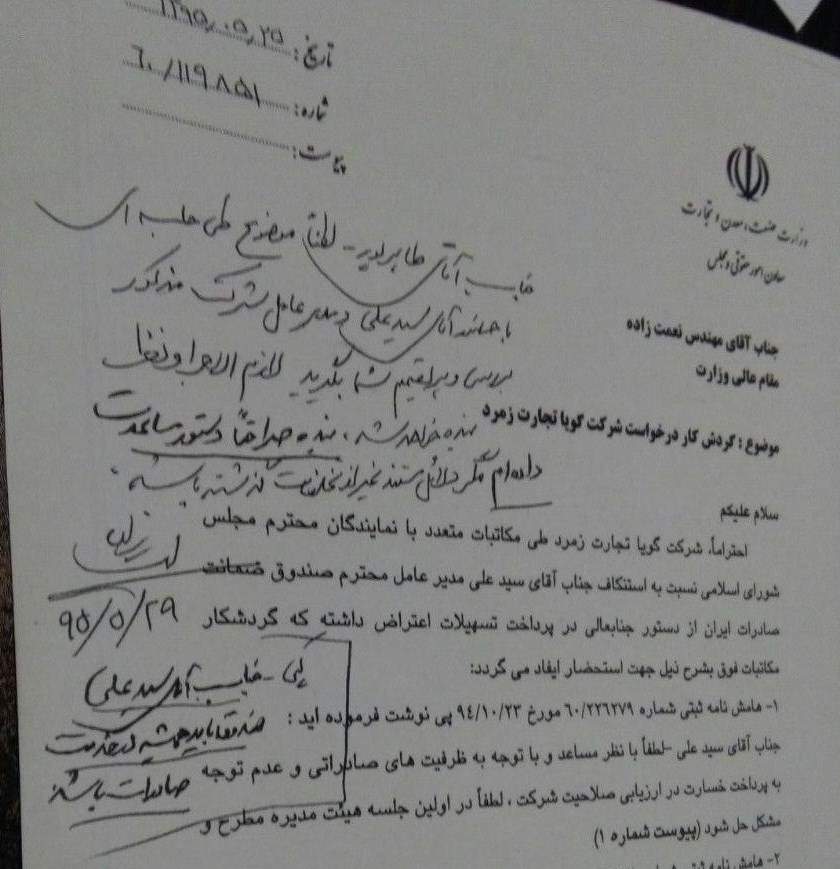 تاریخ: ۱۳۹۵/۰۵/۲۵
شماره: ۶۰/۱۱۹۸۵۱
پیوست:
وزارت صنعت، معدن و تجارت
معاون امور حقوقی و مجلس
جناب آقای مهندس نعمت زاده
مقام عالی وزارت
موضوع: گردش کار درخواست شرکت گویا تجارت زمرد
جناب آقای طاهر - لطفاً موضوع طی جلسه ای
با جناب آقای سید علی و مدیر عامل شرکت مذکور
بررسی و تصمیم شما بگیرید لازم الاجرا
بنده خواهد شد، بنده صداقتاً دستور مساعدت
داده ام مگر دلائل مستند غیر از تخلفات گذشته باشد.
۹۵/۵/۲۹
سلام علیکم
احتراماً، شرکت گویا تجارت زمرد طی مکاتبات متعدد با نمایندگان محترم مجلس
شورای اسلامی نسبت به استنکاف جناب آقای سید علی مدیر عامل محترم صندوق ضمانت
صادرات ایران از دستور جنابعالی در پرداخت تسهیلات اعتراض داشته که گردشکار
مکاتبات فوق بشرح ذیل جهت استحضار ایفاد می گردد:
۱- هامش نامه ثبتی شماره ۶۰/۲۲۶۲۷۹ مورخ ۹۴/۱۰/۲۳ پی نوشت فرموده اید:
جناب آقای سید علی -لطفاً با نظر مساعد و با توجه به ظرفیت های صادراتی و عدم توجه
به پرداخت خسارت در ارزیابی صلاحیت شرکت، لطفاً در اولین جلسه هیئت مدیره مطرح و
مشکل حل شود (پیوست شماره ۱)
۲- هامش نامه ثبتی
جناب آقای سید علی
صندوق باید همیشه در خدمت
صادرات باشد